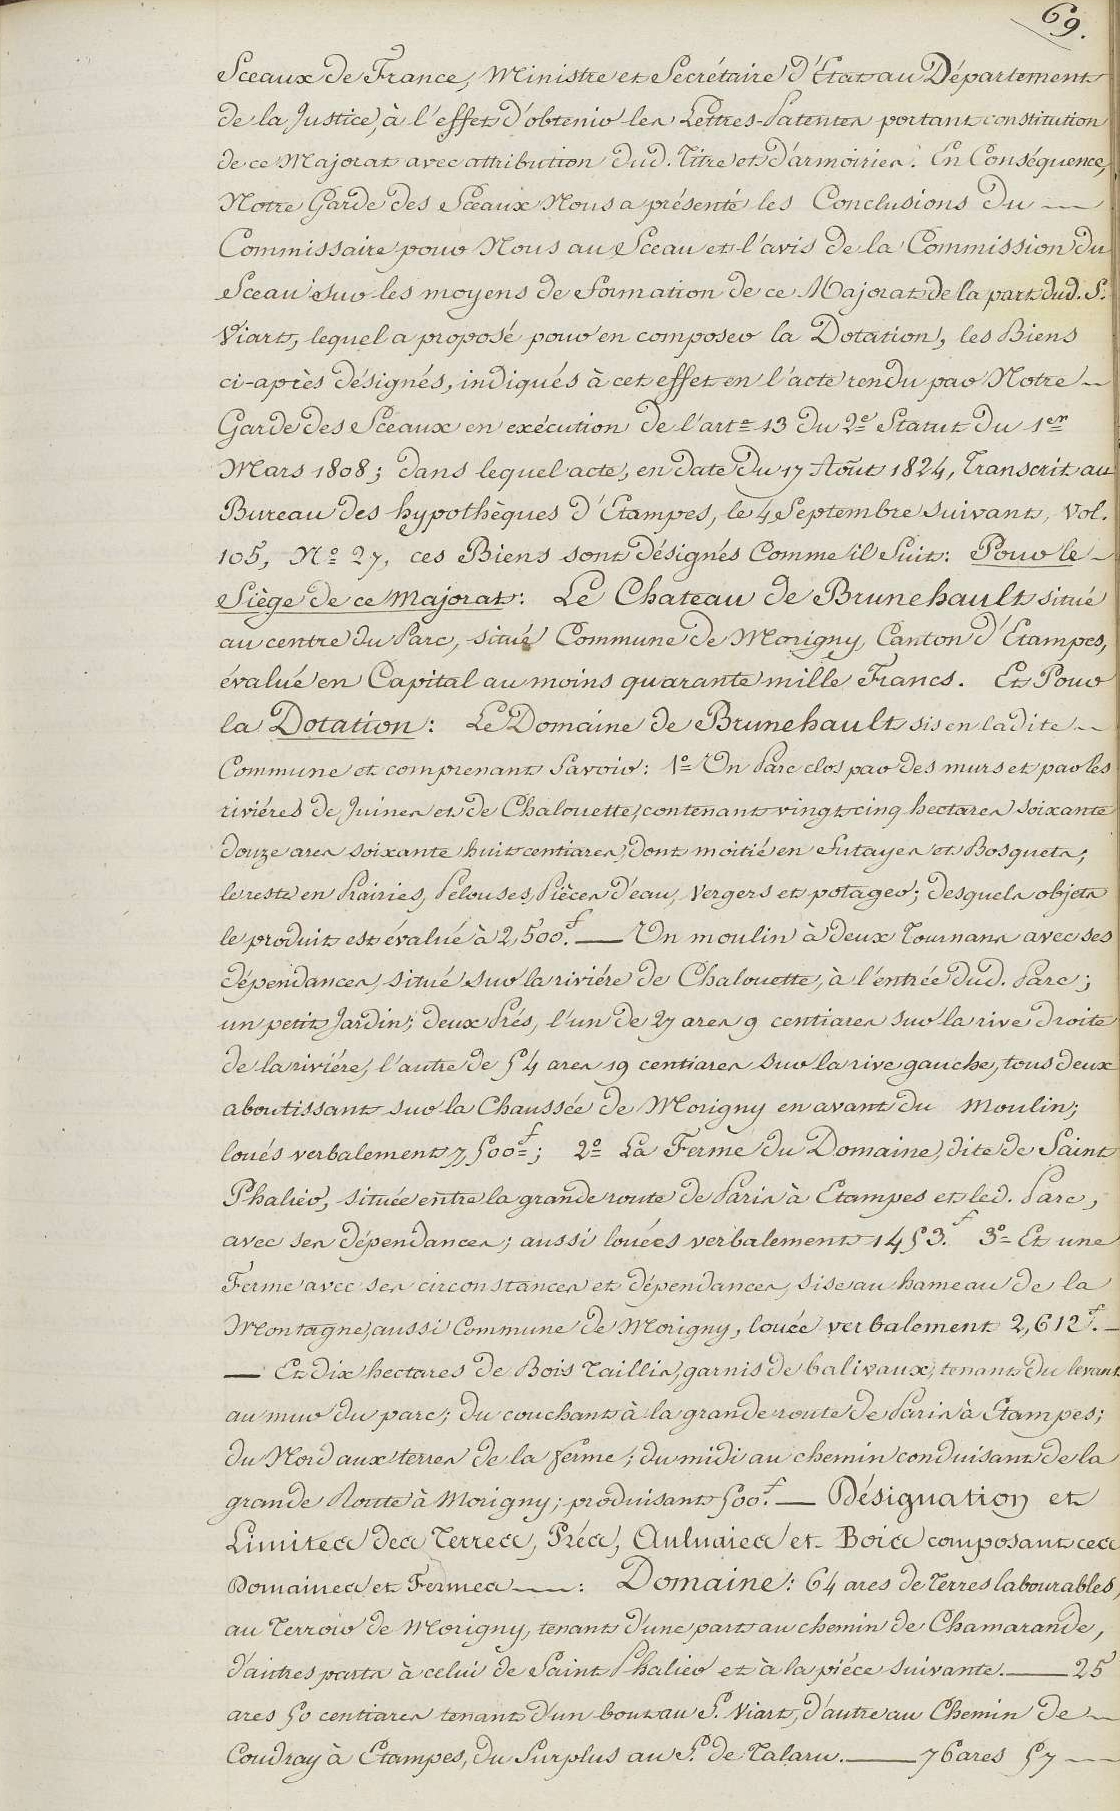 69.
Sceaux de France, Ministre et Secrétaire d'Etat au Département
de la Justice, à l'effet d'obtenir les Lettres-Patentes portant constitution
de ce Majorat avec attribution dud. Titre et d'armoiries. En Conséquence,
Notre Garde des Sceaux Nous a présenté les Conclusions du —
Commissaire pour Nous au Sceau et l'avis de la Commission du
Sceau sur les moyens de formation de ce Majorat de la part dud. S.
Viart, lequel a proposé pour en composer la Dotation, les Biens
ci-après désignés, indiqués à cet effet en l'acte rendu par Notre —
Garde des Sceaux en exécution de l'art.e 13 du 2.e Statut du 1.er
Mars 1808; dans lequel acte, en date du 17 Août 1824, Transcrit au
Bureau des hypothèques d'Etampes, le 4 Septembre suivant, Vol.
105, N.o 27, ces Biens sont désignés Comme il Suit: Pour le —
Siège de ce Majorat: Le Chateau de Brunehault situé
au centre du Parc, situé Commune de Morigny, Canton d'Etampes,
évalué en Capital au moins quarante mille Francs. Et Pour
la Dotation: Le Domaine de Brunehault sis en ladite —
Commune et comprenant Savoir: 1.o Un Parc clos par des murs et par les
riviéres de Juines et de Chalouette, contenant vingt cinq hectares soixante
douze ares soixante huit centiares, dont moitié en futayes et Bosquets;
le reste en Prairies, Pelouses, Pièces d'eau, Vergers et potager; desquels objets
le produit est évalué à 2,500.f — Un moulin à deux Tournans avec ses
dépendances, situé sur la riviére de Chalouette, à l'entrée dud. Parc;
un petit Jardin; deux Prés, l'un de 27 ares 9 centiares sur la rive droite
de la riviére, l'autre de 54 ares 19 centiares sur la rive gauche, tous deux
aboutissant sur la Chaussée de Morigny en avant du Moulin;
loués verbalement 7,500.f; 2.o La Ferme du Domaine, dite de Saint
Phalier, située entre la grande route de Paris à Etampes et led. Parc,
avec ses dépendances; aussi louées verbalement 1453.f 3.o Et une
Ferme avec ses circonstances et dépendances, sise au hameau de la
Montagne, aussi Commune de Morigny, louée verbalement 2,612.f —
— Et dix hectares de Bois Taillis, garnis de balivaux, tenant du levant
au mur du parc; du couchant à la grande route de Paris à Etampes;
du Nord aux terres de la ferme; du midi au chemin conduisant de la
grande Route à Morigny; produisant 500.f — Désignation et
Limites des Terres, Prés, Aulnaies et Bois composant ces
Domaines et Fermes —: Domaine: 64 ares de Terres labourables,
au Terroir de Morigny, tenant d'une part au chemin de Chamarande,
d'autres parts à celui de Saint Phalier et à la piéce suivante. — 25
ares 50 centiares tenant d'un bout au S. Viart, d'autre au Chemin de —
Coudray à Etampes, du Surplus au S. de Talaru. — 76 ares 57 —